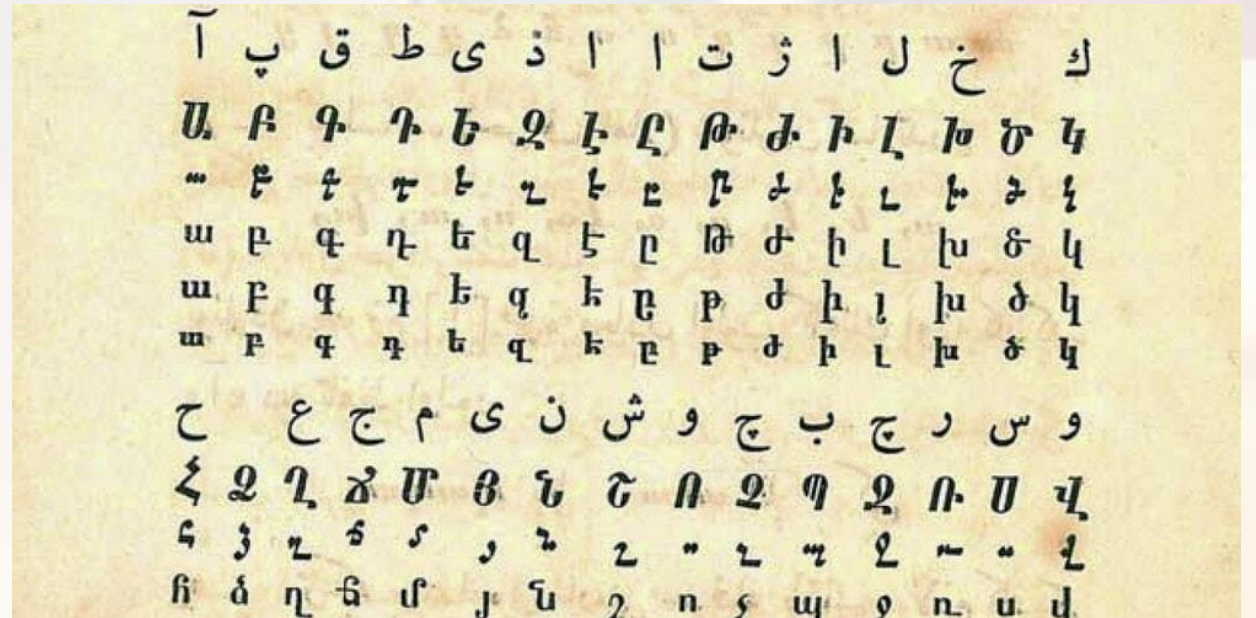 ك خ ل ا ژ ت ا ا ذ ى ط ق پ آ
Ա Բ Գ Դ Ե Զ Է Ը Թ Ժ Ի Լ Խ Ծ Կ
ա բ գ դ ե զ է ը թ ժ ի լ խ ծ կ
ա բ գ դ ե զ է ը թ ժ ի լ խ ծ կ
ա բ գ դ ե զ է ը թ ժ ի լ խ ծ կ
ա բ գ դ ե զ է ը թ ժ ի լ խ ծ կ
و س ر چ ب چ و ش ن ى م ج ع ح
Հ Ձ Ղ Ճ Մ Յ Ն Շ Ո Չ Պ Ջ Ռ Ս Վ
հ ձ ղ ճ մ յ ն շ ո չ պ ջ ռ ս վ
հ ձ ղ ճ մ յ ն շ ո չ պ ջ ռ ս վ